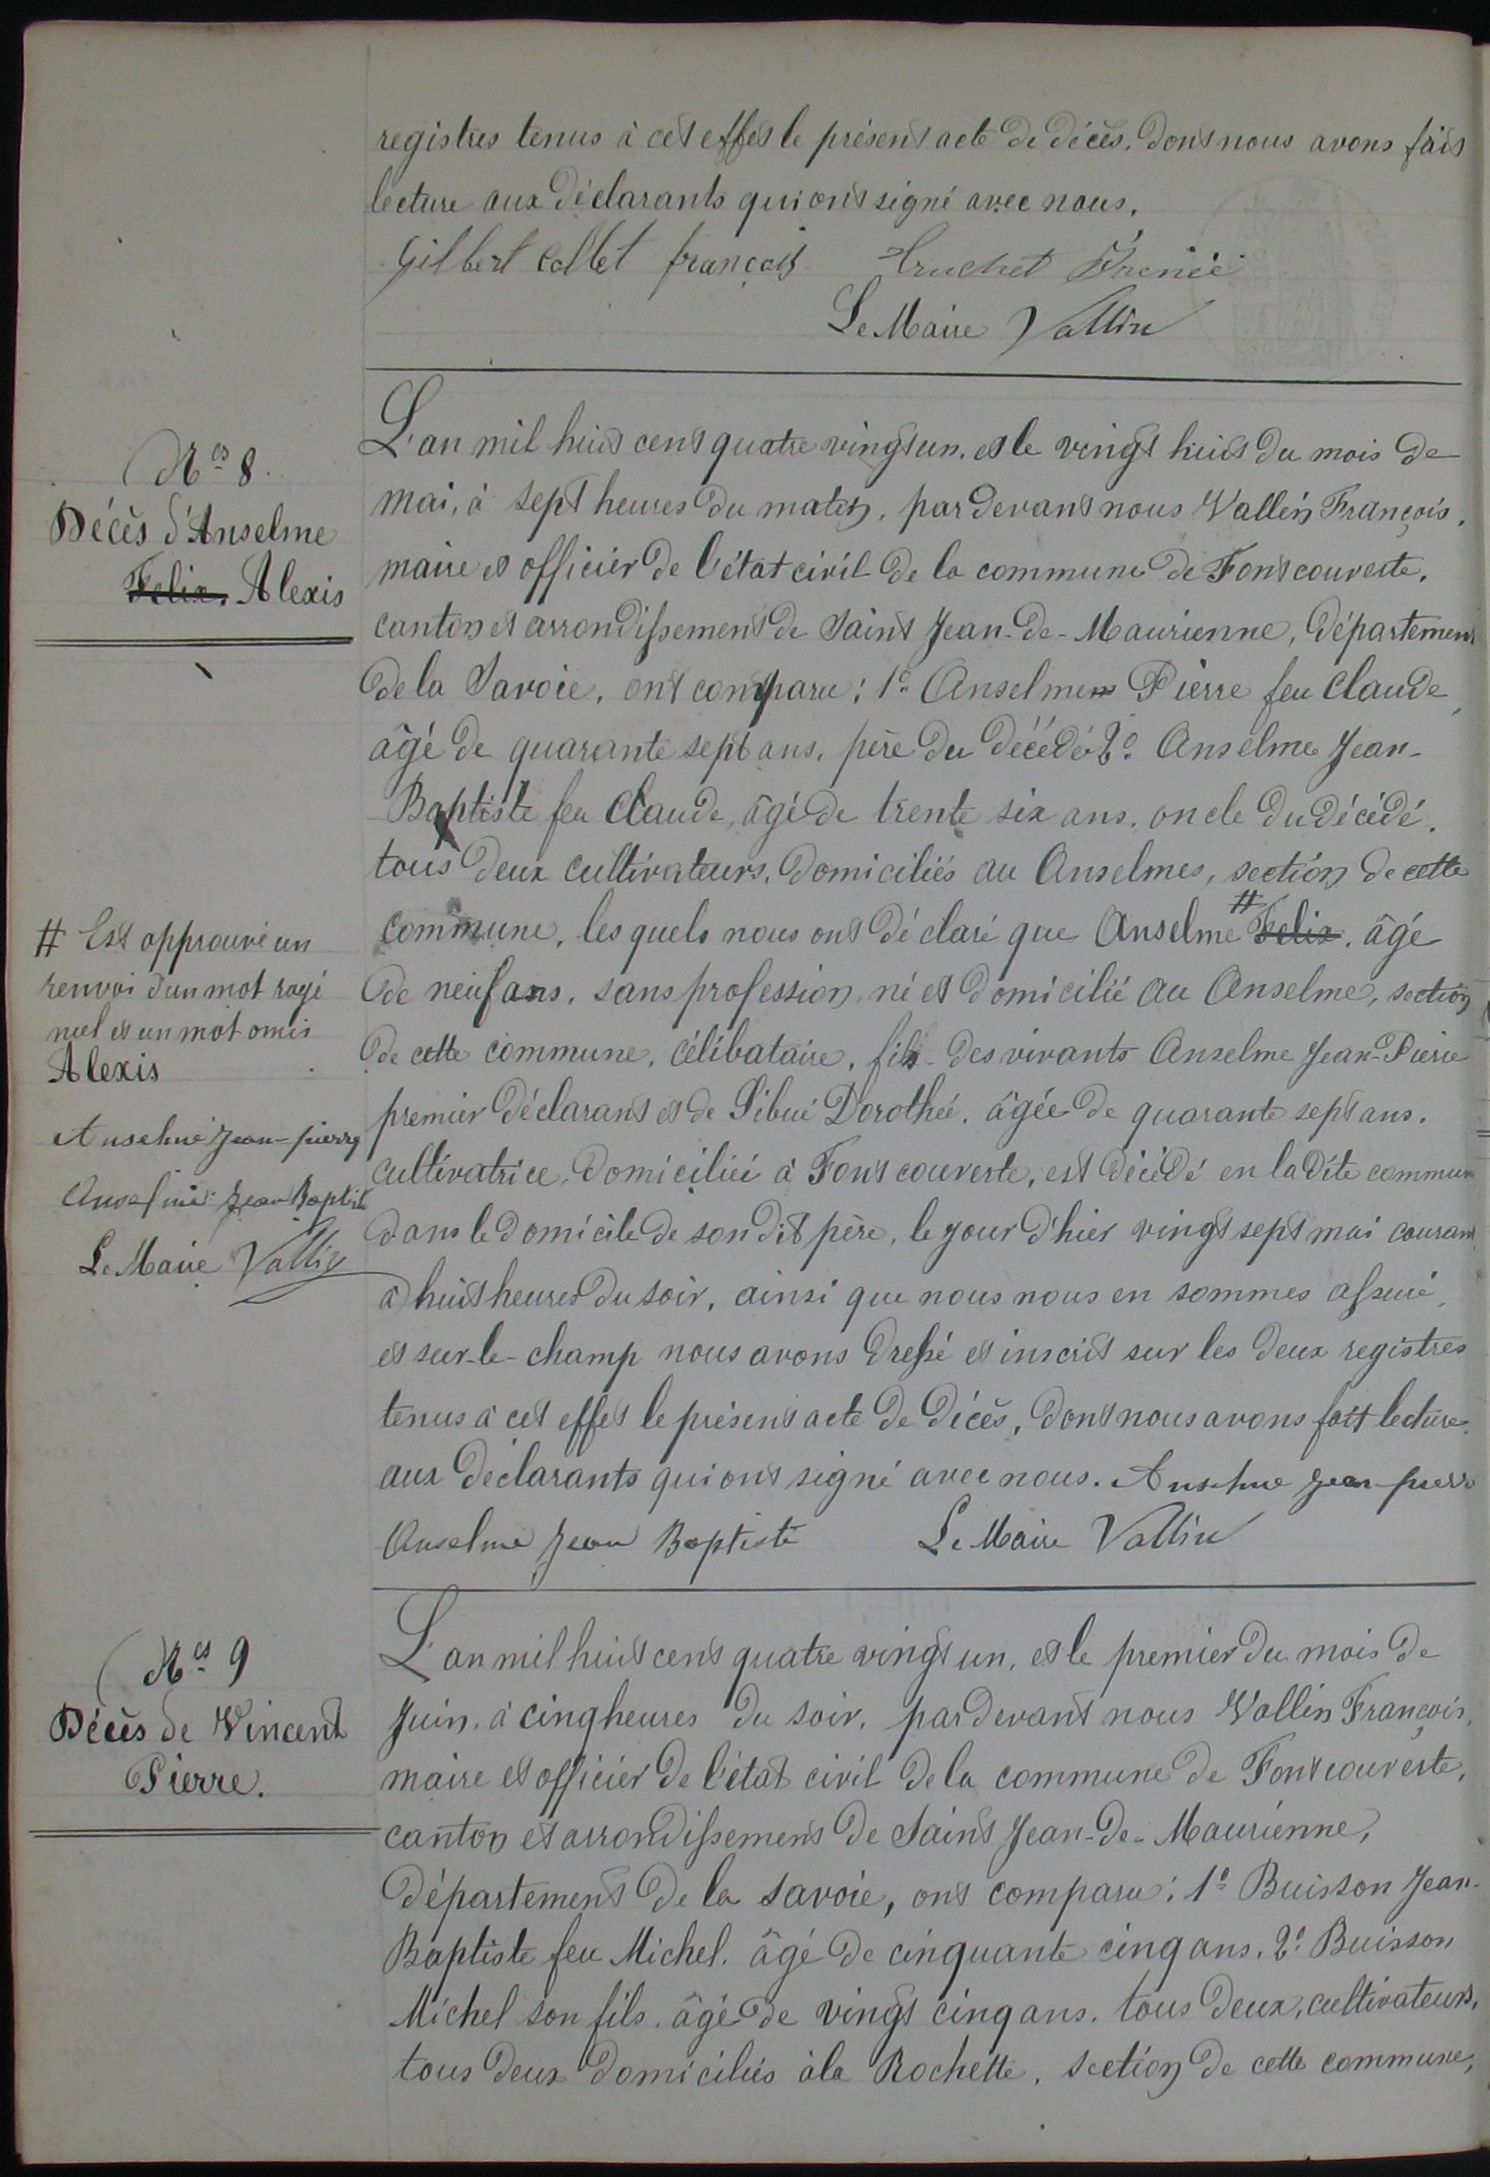 registres tenus à cet effet le présent acte de décès, dont nous avons fait
lecture aux déclarants qui ont signé avec nous.
Gilbert Collet françois Truchet Irénée
Le Maire Vallin
Nos 8.
Décès d'Anselme
Felix. Alexis
L'an mil huit cent quatre vingt un, et le vingt huit du mois de
mai, à sept heures du matin, par devant nous Vallin François,
maire et officier de l'état civil de la commune de Fontcouverte,
canton et arrondissement de Saint Jean-de-Maurienne, Département
de la Savoie, ont comparu: 1o Anselme Pierre feu Claude,
âgé de quarante sept ans, père du décédé 2o Anselme Jean-
Baptiste feu Claude, âgé de trente six ans, oncle du décédé,
tous deux cultivateurs, domiciliés au Anselmes, section de cette
commune, les quels nous ont déclaré que Anselme # Felix, âgé
de neuf ans, sans profession, né et domicilié au Anselme, section
de cette commune, célibataire, fils des vivants Anselme Jean-Pierre
premier déclarant et de Sibué Dorothée, âgée de quarante sept ans,
cultivatrice, domiciliée à Fontcouverte, est décédé en la dite commune
dans le domicile de son dit père, le jour d'hier vingt sept mai courant
à huit heures du soir, ainsi que nous nous en sommes assuré,
et sur-le-champ nous avons dressé et inscrit sur les deux registres
tenus à cet effet le présent acte de décès, dont nous avons fait lecture
aux déclarants qui ont signé avec nous. Anselme Jean-pierre
Anselme Jean Baptiste Le Maire Vallin
# Est approuvé un
renvoi d'un mot rayé
nul et un mot omis
Alexis
Anselme Jean-pierre
Anselme Jean Baptiste
Le Maire Vallin
Nos 9
Décès de Vincent
Pierre.
L'an mil huit cent quatre vingt un, et le premier du mois de
Juin, à cinq heures du soir, par devant nous Vallin François,
maire et officier de l'état civil de la commune de Fontcouverte,
canton et arrondissement de Saint Jean-de-Maurienne,
Département de la Savoie, ont comparu: 1o Buisson Jean-
Baptiste feu Michel, âgé de cinquante cinq ans, 2o Buisson
Michel son fils, âgé de vingt cinq ans, tous deux, cultivateurs,
tous deux domiciliés à la Rochette, section de cette commune,